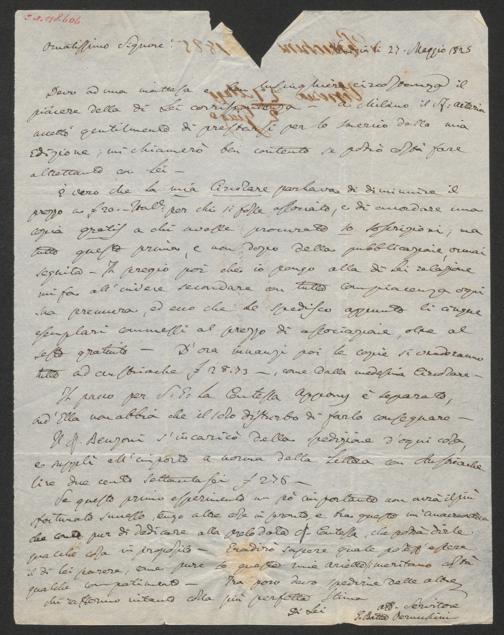 Ornatissimo Signore!
27. Maggio 1825
Devo ad una inattesa e lusinghiera circostanza il
piacere della di Lei corrispondenza — a Milano il
accettò gentilmente di prestarsi per lo smercio della mia
Edizione; mi chiamerò ben contento se potrò fare
altrettanto con Lei —
È vero che la mia Circolare parlava di diminuire il
prezzo per chi si fosse associato, e di accordare una
copia gratis a chi avesse procurato 10 soscrizioni; ma
tutto questo prima, e non dopo della pubblicazione, ormai
seguita — Il pregio poi che io pongo alla di Lei relazione
mi fa all'incidere secondare con tutta compiacenza ogni
sua premura, ed ecco che Le spedisco appunto li cinque
esemplari commessi al prezzo di associazione, oltre al
sesto gratuito — D'ora innanzi poi le copie si venderanno
tutte ad austriache come dalla medesima Circolare —
Il pacco per la Contessa Appony è separato,
ed Ella non abbia che il solo disturbo di farlo consegnare —
Il Benzoni s'incaricò della spedizione d'ogni cosa,
e supplì all'importo a norma della Lettera con Austriache
lire due cento settantasei £ 276 —
Se questo primo esperimento un pò importante non avrà il più
sfortunato successo, tengo altre cose in pronto e fra queste
che conto pur di dedicare alla prelodata Contessa, che potrà dirle
qualche cosa in proposito — Gradirò sapere quale possa essere
il di lei parere, e se pure queste mie ariette meritano
qualche compatimento — Fra poco darò spedizione delle altre,
attesterno intanto colla più perfetta stima
Di Lei
Servitore
G. Batta Perucchini